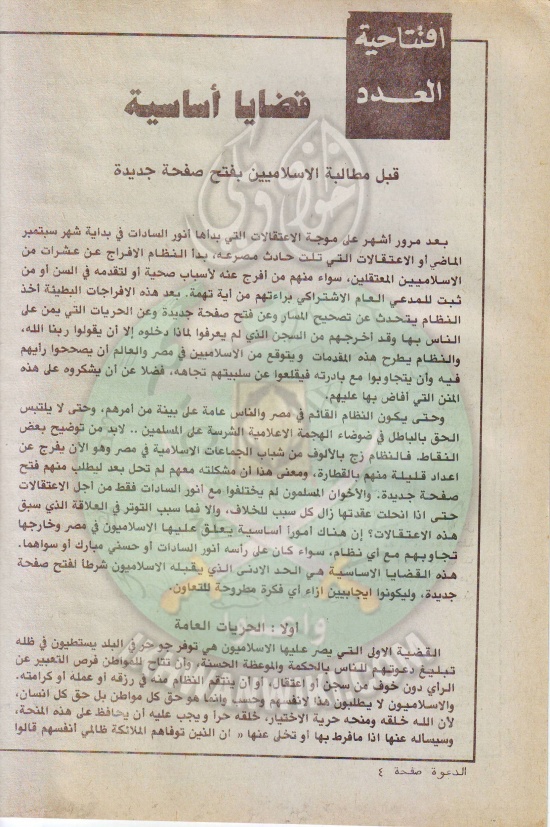 افتتاحية
العدد
قضايا أساسية
قبل مطالبة الاسلاميين بفتح صفحة جديدة
بعد مرور أشهر على موجة الاعتقالات التي بدأها أنور السادات في بداية شهر سبتمبر
الماضي أو الاعتقالات التي تلت حادث مصرعه، بدأ النظام الافراج عن عشرات من
الاسلاميين المعتقلين، سواء منهم من أفرج عنه لأسباب صحية أو لتقدمه في السن أو من
ثبت للمدعي العام الاشتراكي براءتهم من أية تهمة. بعد هذه الافراجات البطيئة أخذ
النظام يتحدث عن تصحيح المسار وعن فتح صفحة جديدة وعن الحريات التي يمن على
الناس بها وقد أخرجهم من السجن الذي لم يعرفوا لماذا دخلوه إلا أن يقولوا ربنا الله،
والنظام يطرح هذه المقدمات ويتوقع من الاسلاميين في مصر والعالم أن يصححوا رأيهم
فيه وأن يتجاوبوا مع بادرته فيقلعوا عن سلبيتهم تجاهه، فضلا عن أن يشكروه على هذه
المنن التي أفاض بها عليهم.
وحتى يكون النظام القائم في مصر والناس عامة على بينة من أمرهم، وحتى لا يلتبس
الحق بالباطل في ضوضاء الهجمة الاعلامية الشرسة على المسلمين .. لابد من توضيح بعض
النقاط. فالنظام زج بالألوف من شباب الجماعات الاسلامية في مصر وهو الآن يفرج عن
اعداد قليلة منهم بالقطارة، ومعنى هذا أن مشكلته معهم لم تحل بعد ليطلب منهم فتح
صفحة جديدة، والأخوان المسلمون لم يختلفوا مع أنور السادات فقط من اجل الاعتقالات
حتى اذا انحلت عقدتها زال كل سبب للخلاف، والا فما سبب التوتر في العلاقة الذي سبق
هذه الاعتقالات؟ إن هناك أموراً أساسية يعلق عليها الاسلاميون في مصر وخارجها
تجاوبهم مع أي نظام، سواء كان على رأسه أنور السادات أو حسني مبارك أو سواهما.
هذه القضايا الاساسية هي الحد الادنى الذي يقبله الاسلاميون شرطاً لفتح صفحة
جديدة، وليكونوا ايجابيين ازاء أي فكرة مطروحة للتعاون.
أولا : الحريات العامة
القضية الاولى التي يصر عليها الاسلاميون هي توفر جو حر في البلد يستطيون في ظله
تبليغ دعوتهم للناس بالحكمة والموعظة الحسنة، وأن تتاح للمواطن فرص التعبير عن
الرأي دون خوف من سجن أو اعتقال، أو أن ينتقم النظام منه في رزقه أو عمله أو كرامته.
والاسلاميون لا يطلبون هذا لانفسهم وحسب وانما هو حق كل مواطن بل حق كل انسان،
لأن الله خلقه ومنحه حرية الاختيار، خلقه حراً ويجب عليه أن يحافظ على هذه المنحة،
وسيساله عنها اذا مافرط بها أو تخلى عنها « ان الذين توفاهم الملائكة ظالمي أنفسهم قالوا
الدعوة صفحة ٤